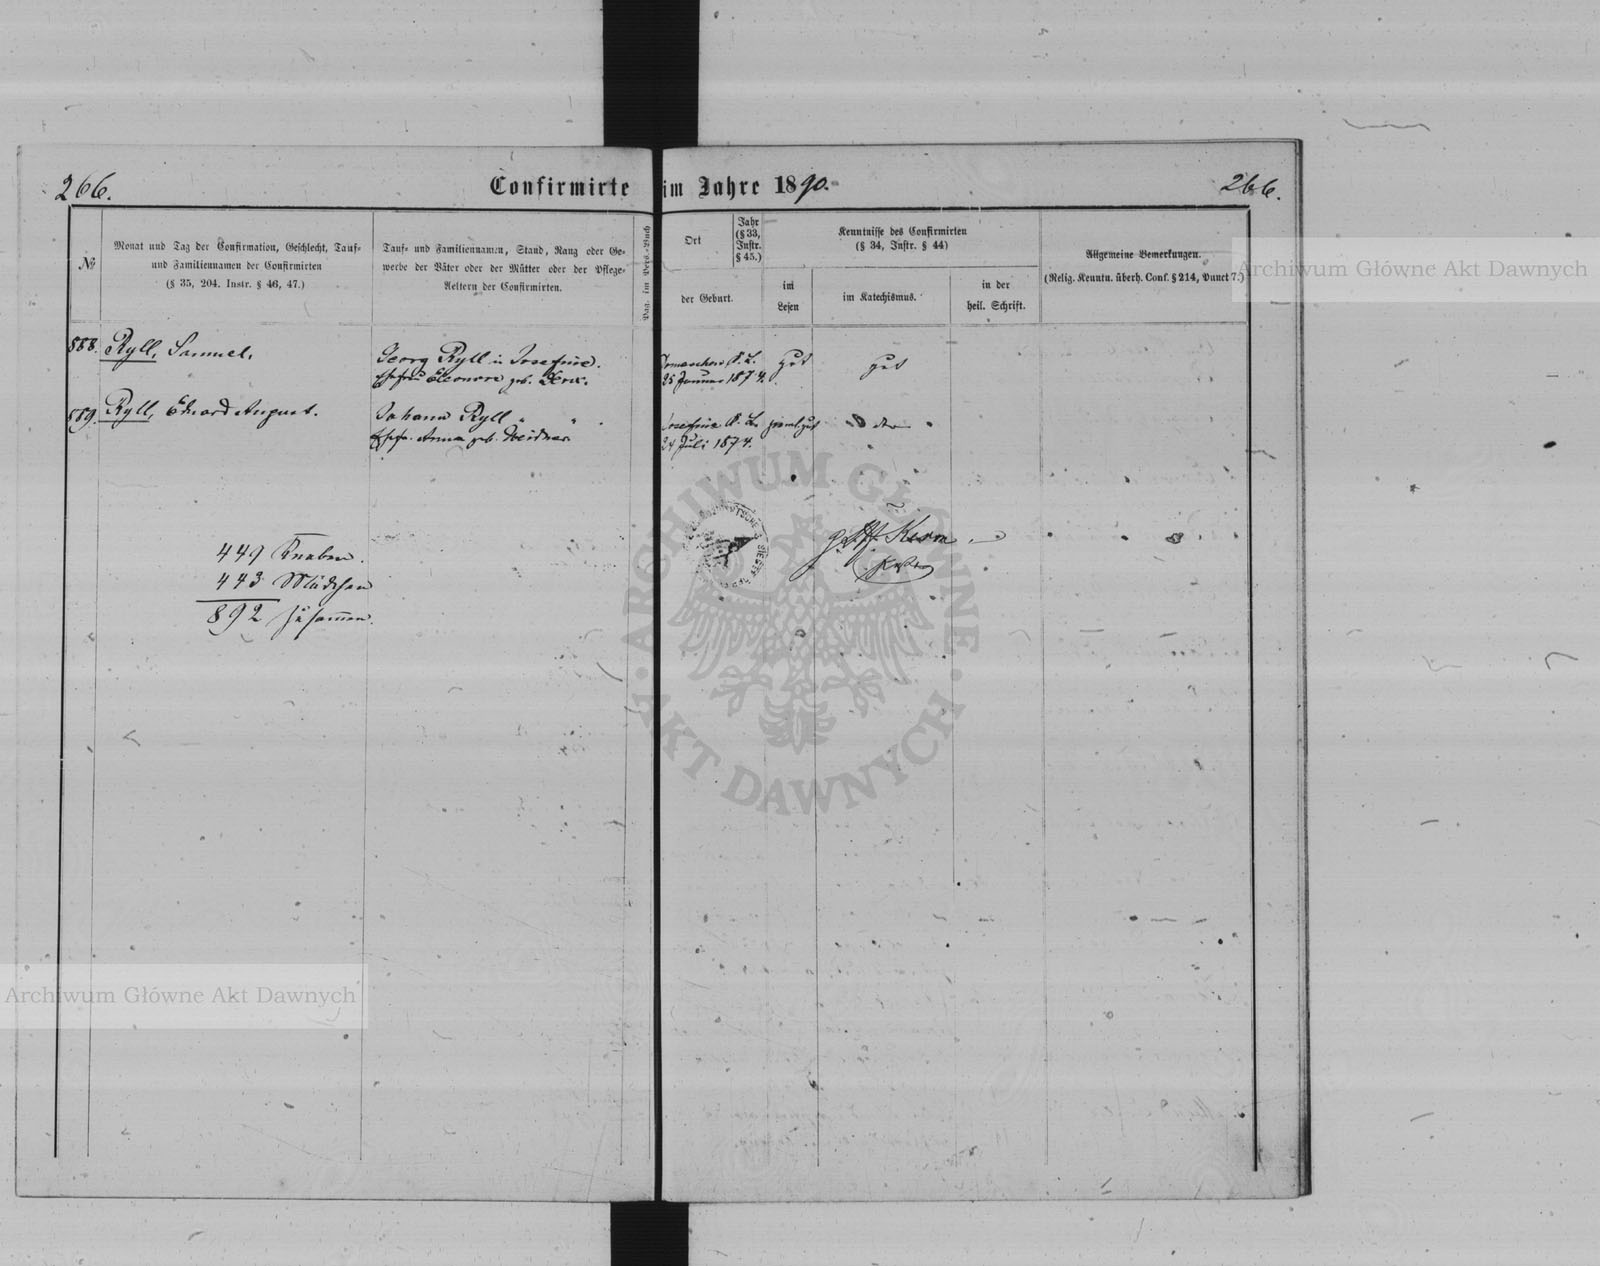 266.
Confirmirte im Jahre 1890.
266.
№
Monat und Tag der Confirmation, Geschlecht, Tauf-
und Familiennamen der Confirmirten
(§ 35, 204. Instr. § 46, 47.)
Tauf- und Familiennamen, Stand, Rang oder Ge-
werbe der Väter oder der Mütter oder der Pflege-
Aeltern der Confirmirten.
Pag. im Pers.-Buch
Ort
Jahr
(§ 33,
Instr.
§ 45.)
der Geburt.
Kenntnisse des Confirmirten
(§ 34, Instr. § 44)
im
Lesen
im Katechismus.
in der
heil. Schrift.
Allgemeine Bemerkungen.
(Relig. Kenntn. überh. Conf. § 214, Punct 7.)
888. Ryll, Samuel,
Georg Ryll in Josefine.
Ehefrau Eleonore geb.
25 Januar 1874.
gut
gut
889. Ryll, Eduard August.
Johann Ryll " "
Anna geb.
Josefine
24 Juli 1874.
zieml. gut
449 Knaben.
443 Mädchen
892 zusammen.
Archiwum Główne Akt Dawnych
ARCHIWUM GŁÓWNE
AKT DAWNYCH
Archiwum Główne Akt Dawnych